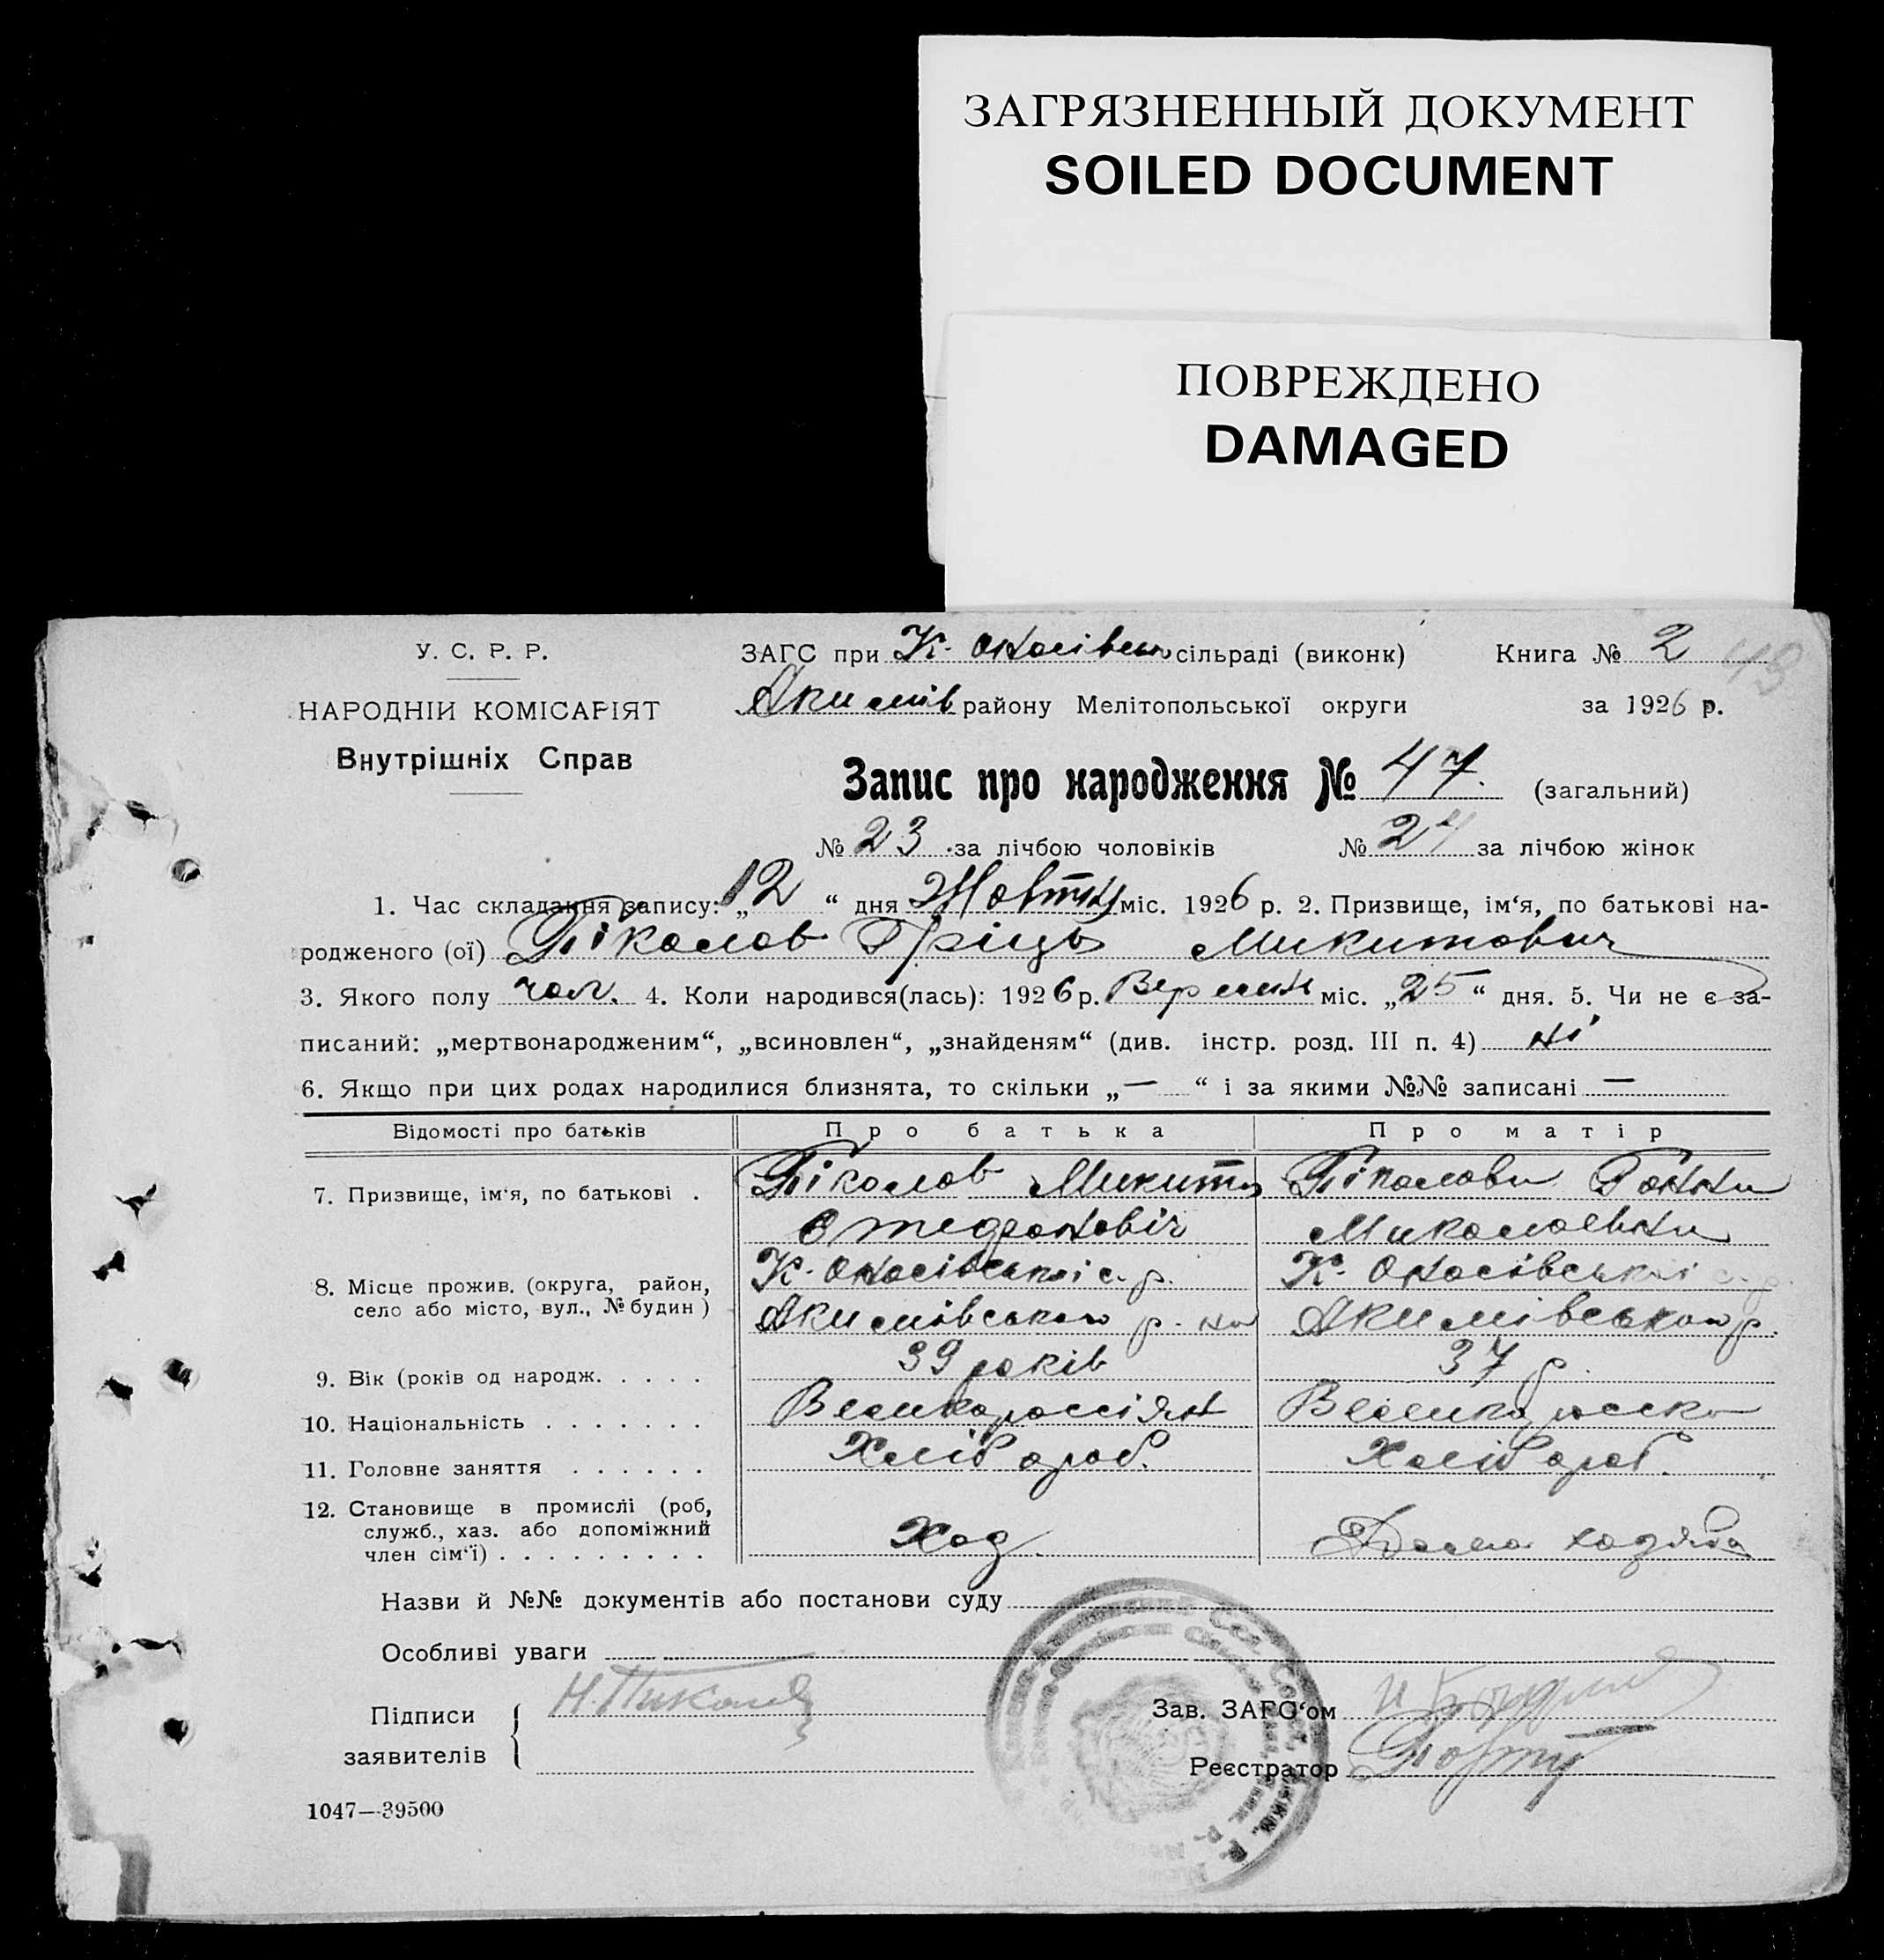 ЗАГРЯЗНЕННЫЙ ДОКУМЕНТ
SOILED DOCUMENT
ПОВРЕЖДЕНО
DAMAGED
У. С. Р. Р.
НАРОДНІЙ КОМІСАРІЯТ
Внутрішніх Справ
ЗАГС при К. сільраді (виконк) Книга № 2 43
Акимів району Мелітопольської округи за 1926 р.
Запис про народження № 47. (загальний)
№ 23 за лічбою чоловіків № 24 за лічбою жінок
1. Час складання запису: „12“ дня Жовтня міс. 1926 р. 2. Призвище, ім'я, по батькові на-
родженого (ої) Піколов Гріць Микитович
3. Якого полу чол. 4. Коли народився(лась): 1926 р. Вересня міс. „25“ дня. 5. Чи не є за-
писаний: „мертвонародженим“, „всиновлен“, „знайденям“ (див. інстр. розд. III п. 4) ні
6. Якщо при цих родах народилися близнята, то скільки „—“ і за якими №№ записані —
Відомості про батьків Про батька Про матір
7. Призвище, ім'я, по батькові . Піколов Микита Піколова Ганна
Миколаевна
8. Місце прожив. (округа, район, село або місто, вул., № будин) К. с. р. К. с. р.
Акимівського р-на Акимівського р.
9. Вік (років од народж. . . . . 39 років 37 р.
10. Національність . . . . . . . Великоросіян Великоруска
11. Головне заняття . . . . . . Хлібороб. Хлібороб.
12. Становище в промислі (роб,
служб., хаз. або допоміжний
член сім'ї) . . . . . . . . . Хаз. Дома хазяйка
Назви й №№ документів або постанови суду
Особливі уваги
Підписи заявителів Н. Пиколов
Зав. ЗАГС'ом
Реєстратор
1047—39500